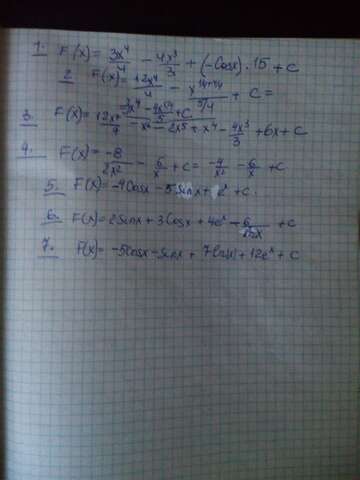 1. F(x) = 3x⁴/4 - 4x³/3 + (-Cosx) · 15 + C
2. F(x) = 12x⁴/4 - x^(1/4+4/4)/(5/4) + C =
= 3x⁴ - 4x^(5/4)/5 + C
3. F(x) = 12x⁷/7 - x⁶ - 2x⁵ + x⁴ - 4x³/3 + 6x + C
4. F(x) = -8/2x² - 6/x + C = -4/x² - 6/x + C
5. F(x) = -4Cosx - 5Sinx + eˣ + C.
6. F(x) = 2Sinx + 3Cosx + 4eˣ + C
7. F(x) = -5Cosx - Sinx + 7ln|x| + 12eˣ + C